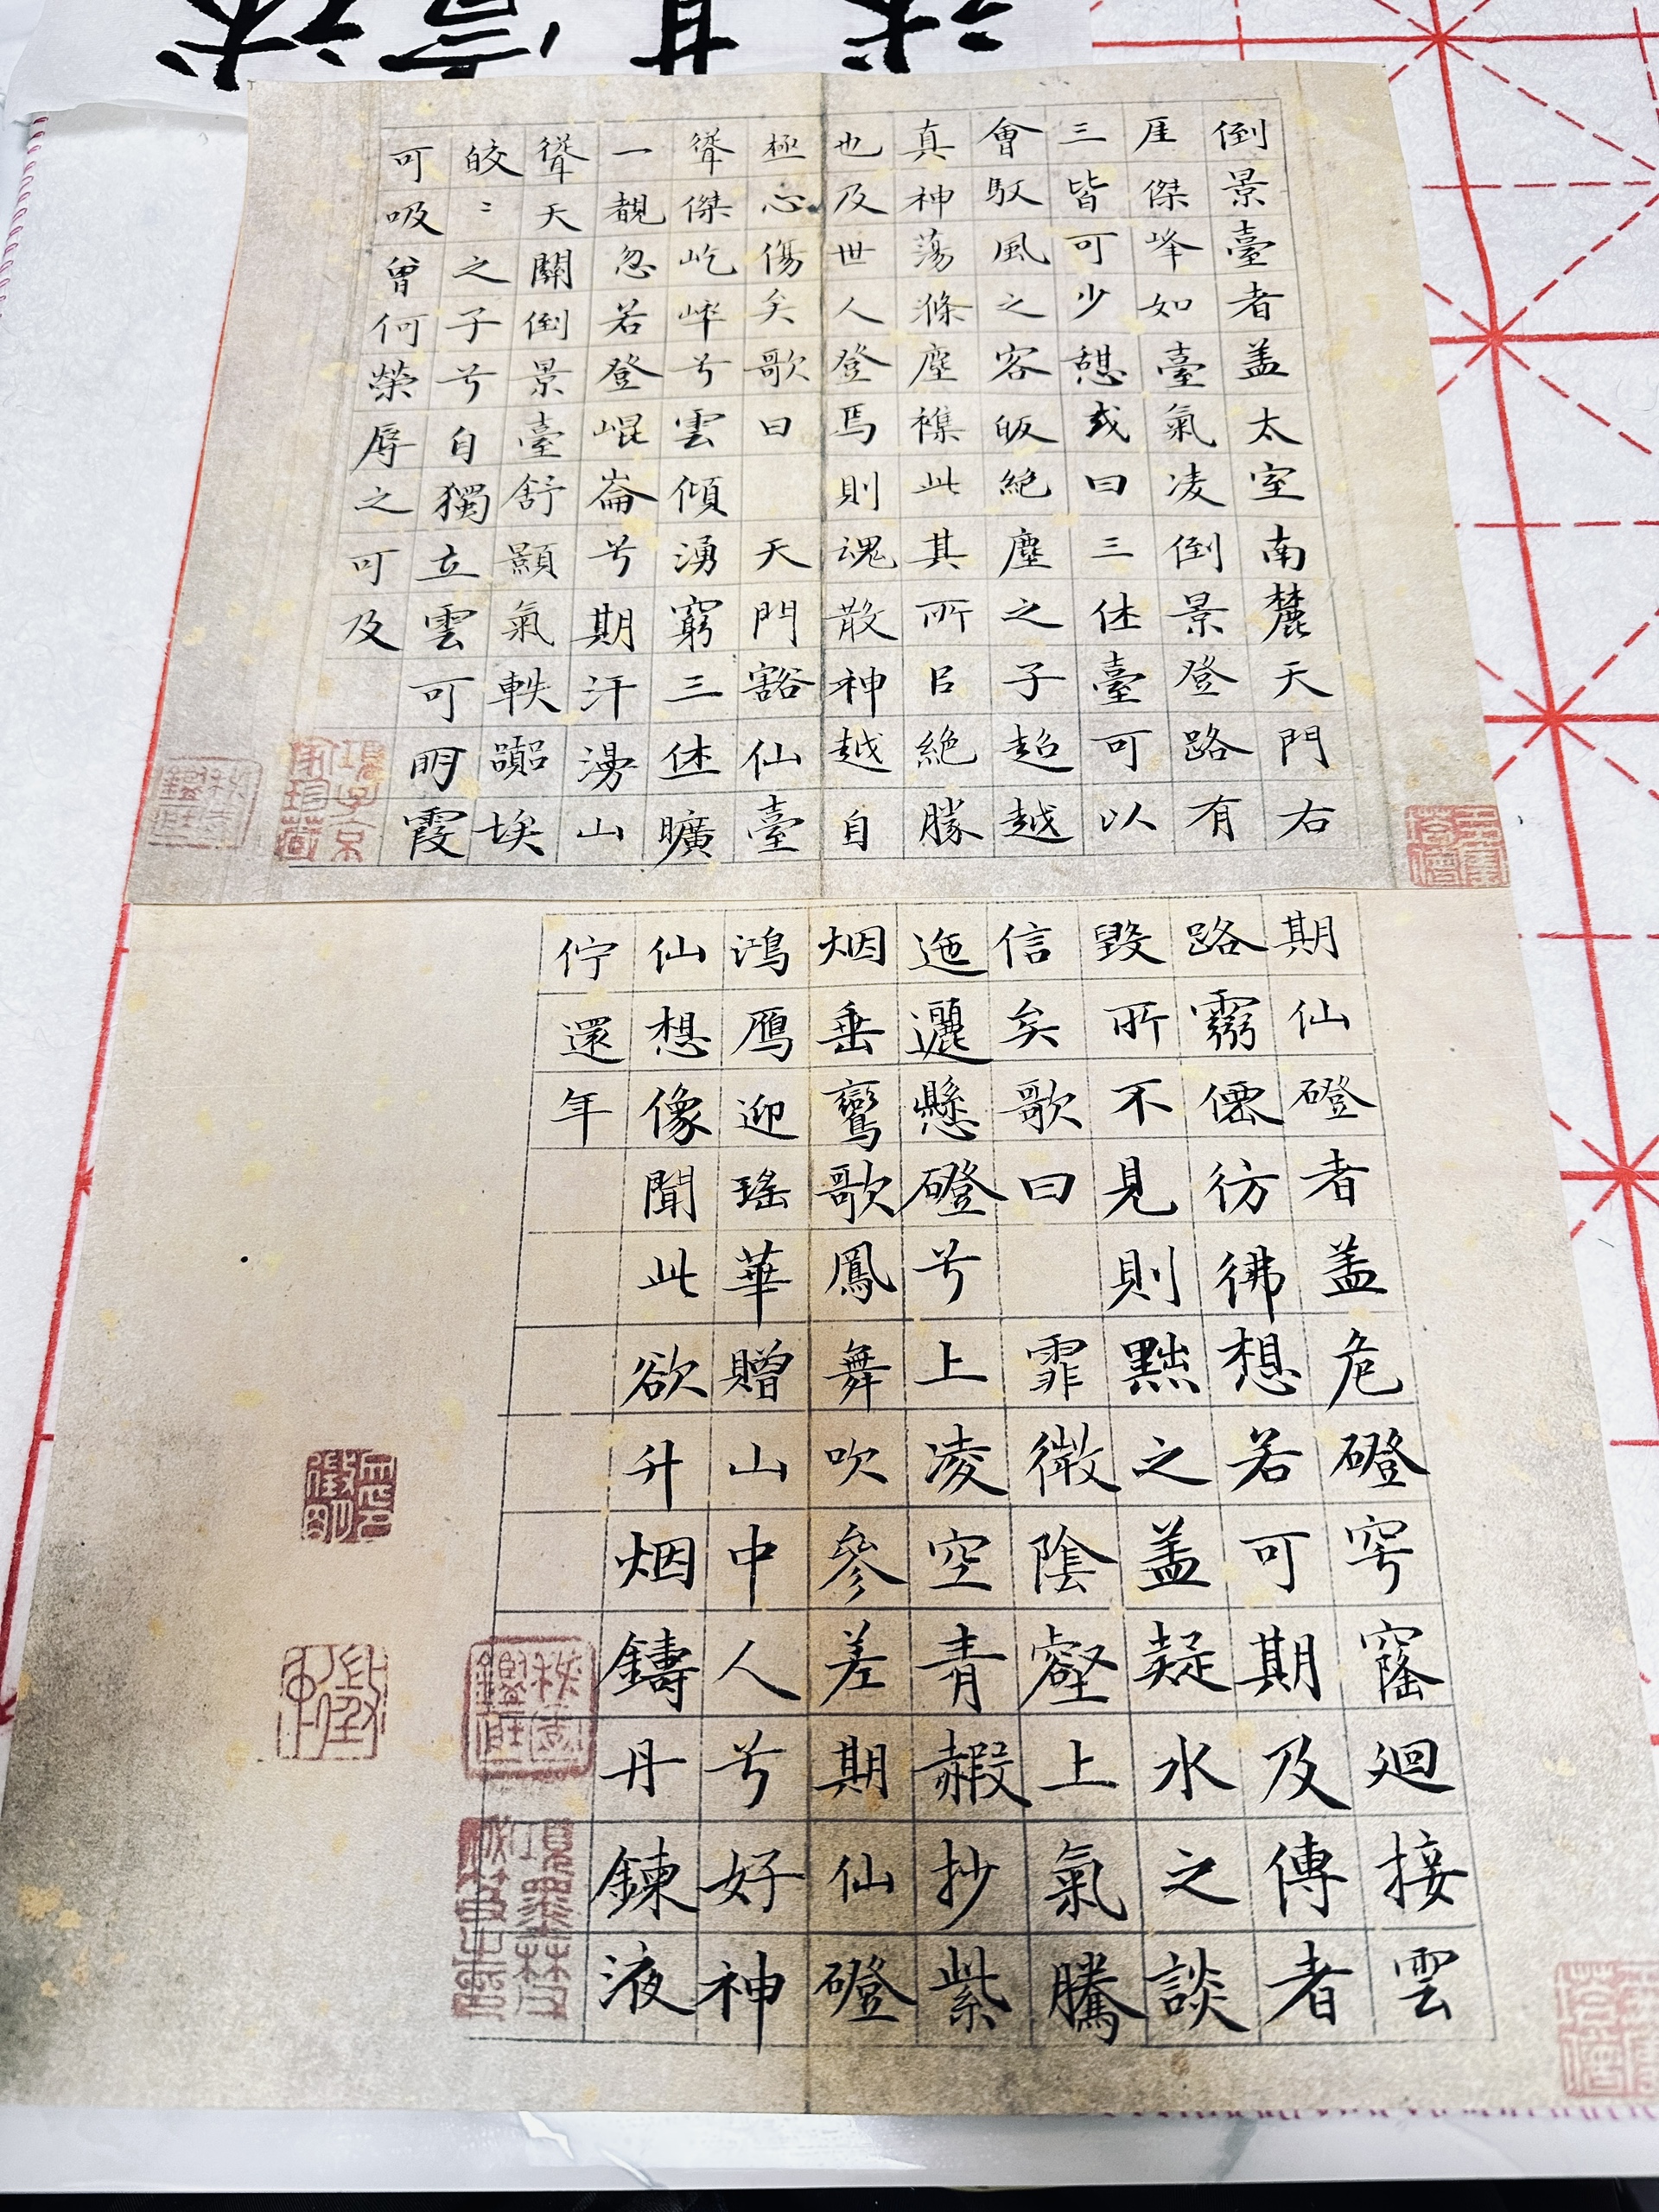 倒景臺者盖太室南麓天門右
厓傑峰如臺氣凌倒景登路有
三皆可少憩或曰三休臺可以
會馭風之客皈絕塵之子超越
真神蕩滌塵襟此其所㠯絕勝
也及世人登焉則魂散神越自
極心傷矣歌曰 天門豁仙臺
聳傑屹崒兮雲傾湧窮三休曠
一覩忽若登崐崙兮期汗漫山
聳天關倒景臺舒顥氣軼囂埃
皎〻之子兮自獨立雲可明霞
可吸曾何榮辱之可及
項子京家珍藏
期仙磴者盖危磴穹窿迴接雲
路靈僊彷彿想若可期及傳者
毀所不見則黜之盖疑氷之談
信矣歌曰 霏微陰壑上氣騰
迤邐懸磴兮上凌空青赮抄紫
烟垂鸞歌鳳舞吹參差期仙磴
鴻鴈迎瑤華贈山中人兮好神
仙想像聞此欲升烟鑄丹鍊液
佇還年